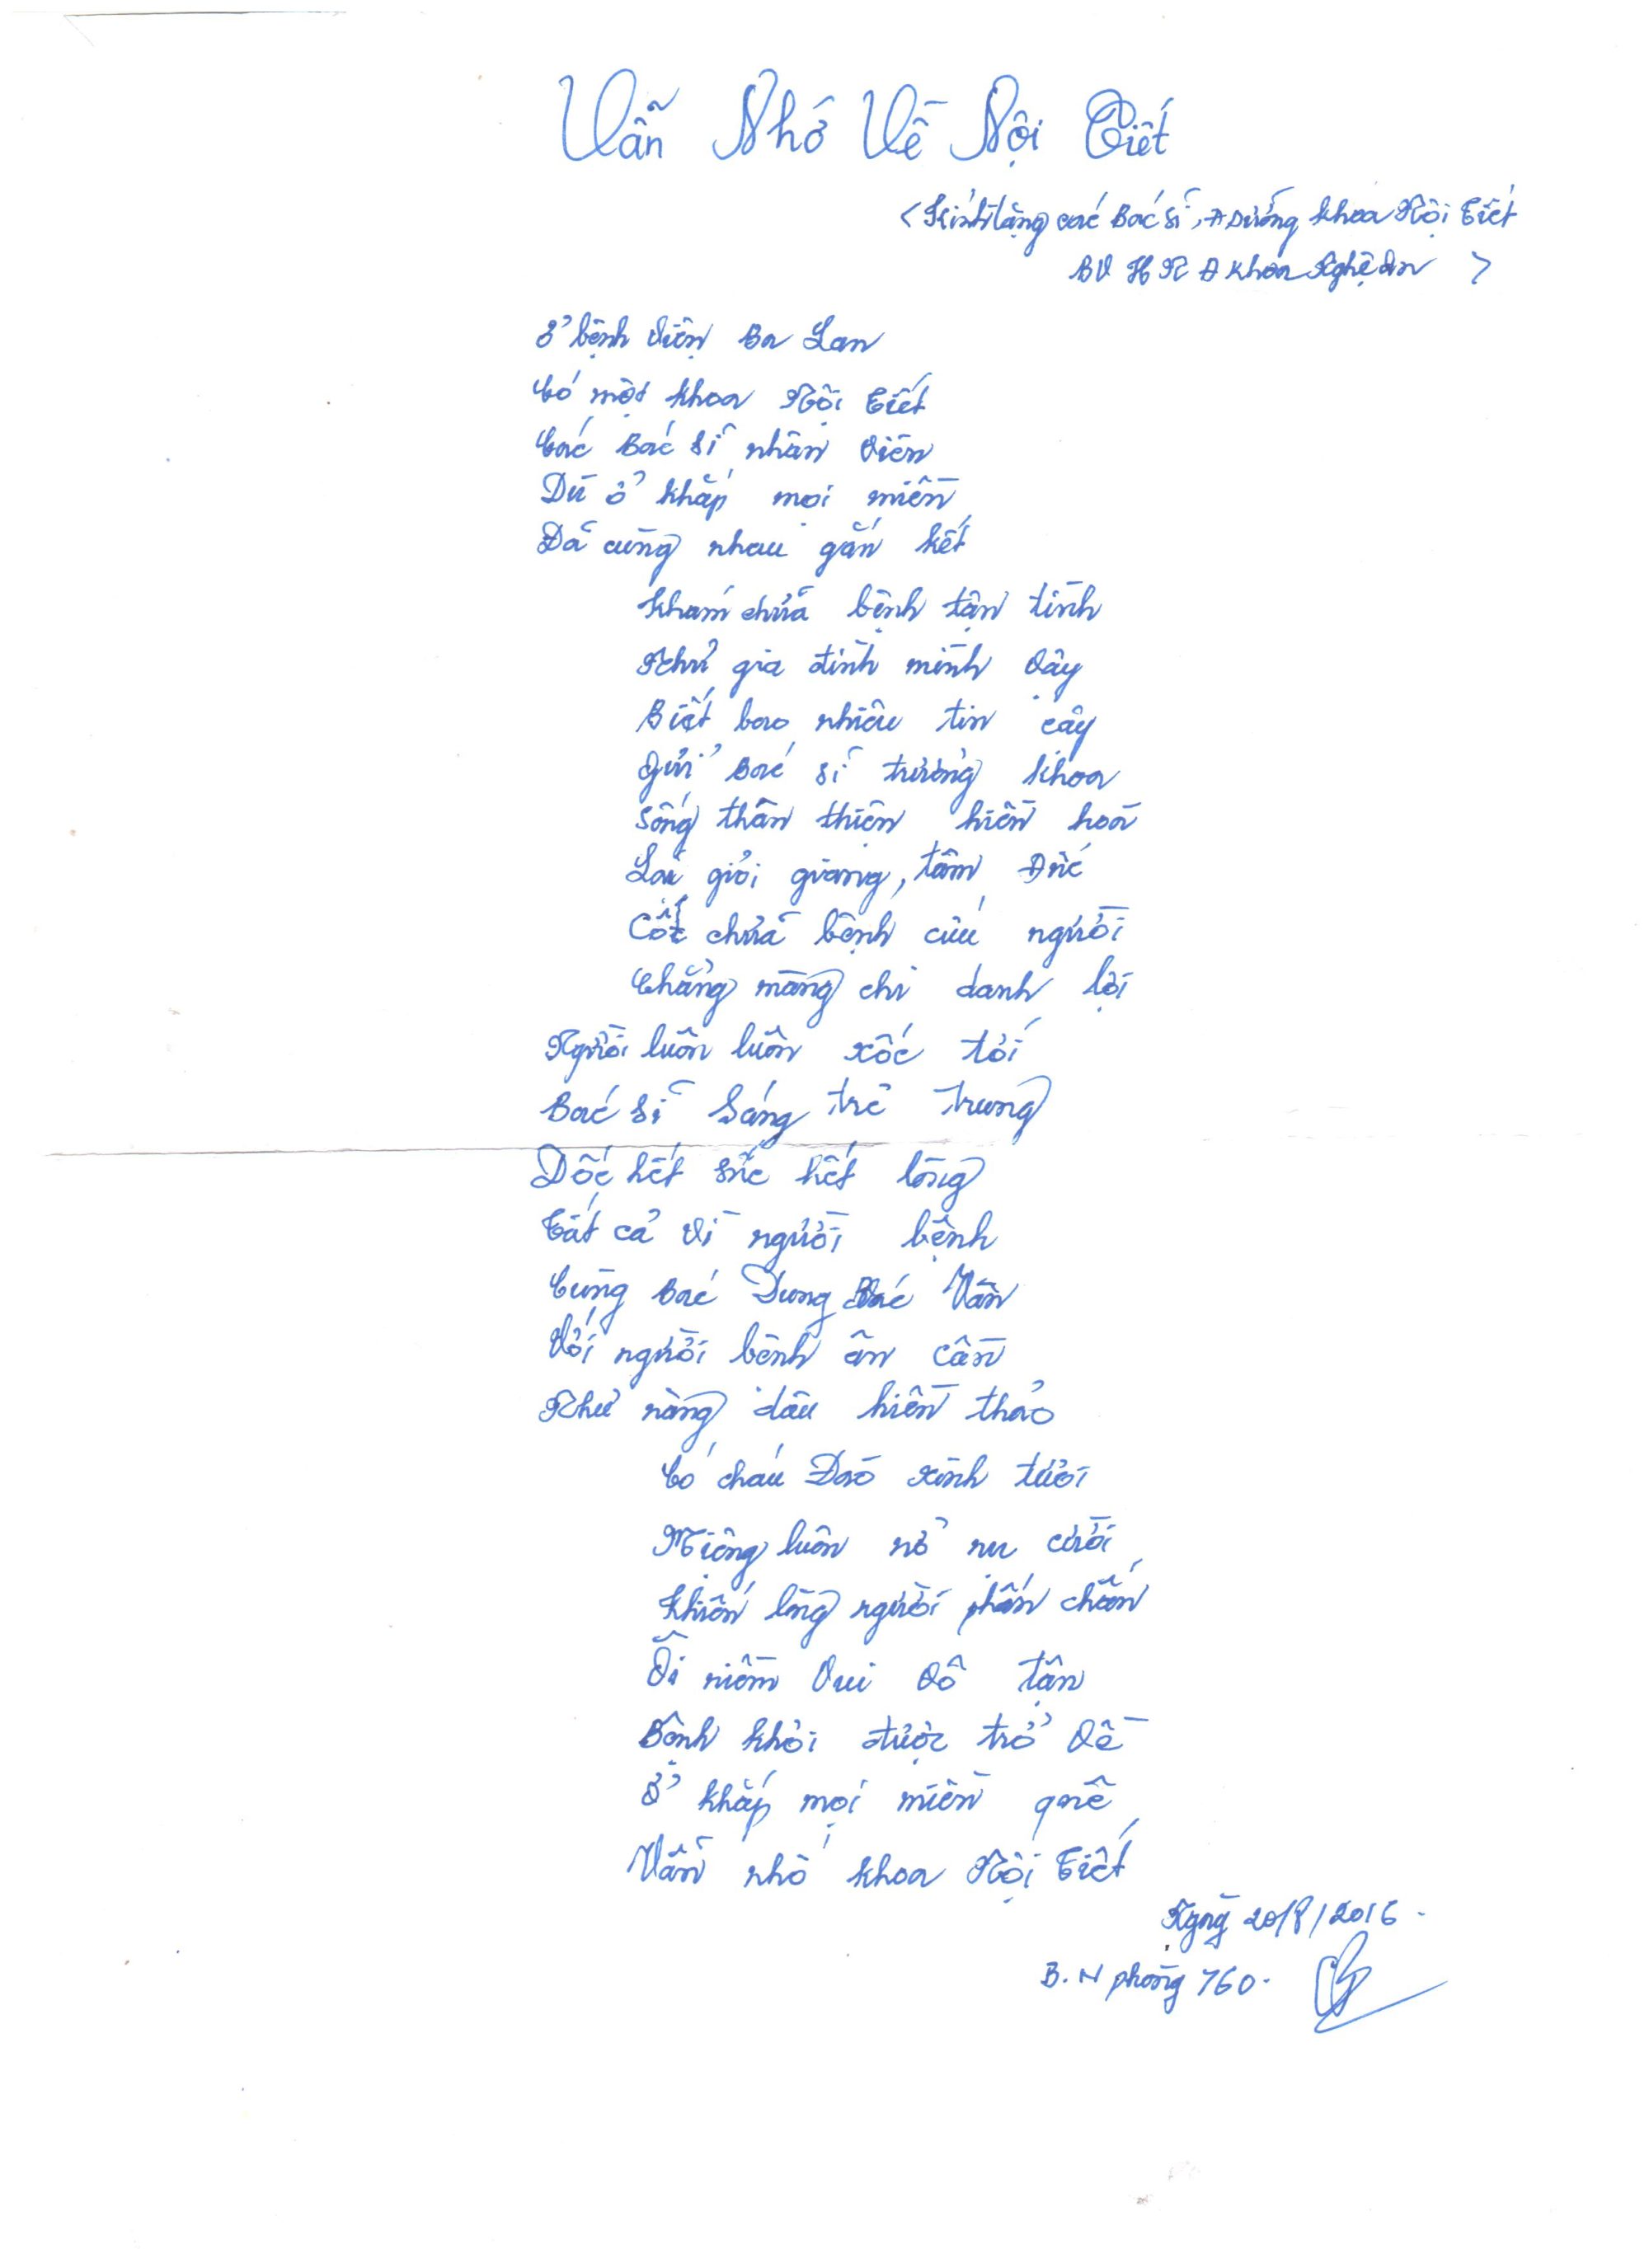 Vẫn Nhớ Về Nội Tiết
<Kính tặng các Bác sĩ, Đ Dưỡng khoa Nội Tiết
BV H N Đ Khoa Nghệ An >
Ở bệnh viện Ba Lan
Có một khoa Nội Tiết
Các Bác sĩ nhân viên
Dù ở khắp mọi miền
Đã cùng nhau gắn kết
Khám chữa bệnh tận tình
Như gia đình mình vậy
Biết bao nhiêu tin cậy
Gửi Bác sĩ trưởng khoa
Sống thân thiện hiền hoà
Lại giỏi giang, tâm Đức
Cốt chữa bệnh cứu người
Chẳng màng chi danh lợi
Người luôn luôn xốc tới
Bác sĩ Sáng trẻ trung
Dốc hết sức hết lòng
Tất cả vì người bệnh
Cùng Bác Dung Bác Vân
Với người bệnh ân cần
Như nàng dâu hiền thảo
Có cháu Đào xinh tươi
Miệng luôn nở nụ cười
Khiến lòng người phấn chấn
Ôi niềm vui vô tận
Bệnh khỏi được trở về
Ở khắp mọi miền quê
Vẫn nhớ khoa Nội Tiết
Ngày 20/8/2016.
B.N phòng 760.